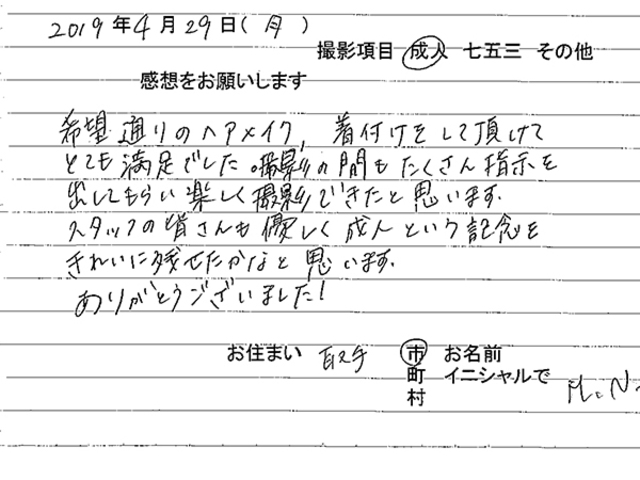 2019年4月29日(月)
撮影項目 成人 七五三 その他
感想をお願いします
希望通りのヘアメイク, 着付けをして頂けて
とても満足でした。撮影の間もたくさん指示を
出してもらい楽しく撮影できたと思います.
スタッフの皆さんも優しく成人という記念を
きれいに残せたかなと思います.
ありがとうございました!
お住まい 取手 市 お名前
町 イニシャルで M.N.
村